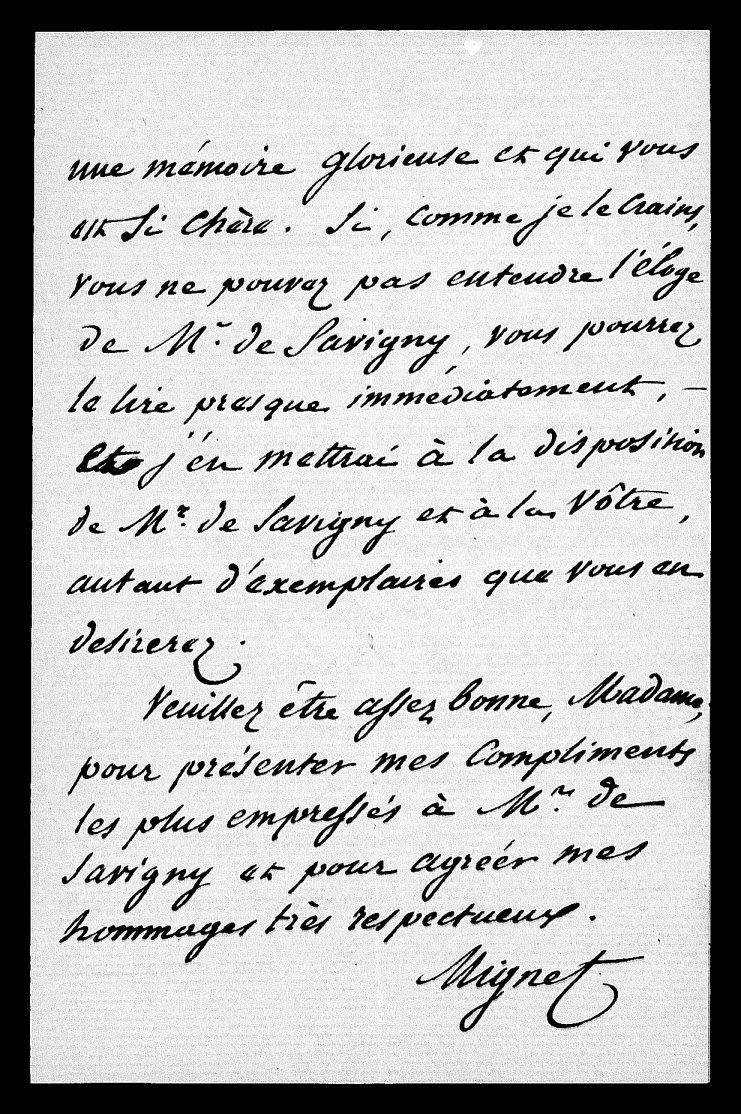 une mémoire glorieuse et qui vous
est si chère. Si, comme je le crains,
vous ne pouvez pas entendre l'éloge
de Mr. de Savigny, vous pourrez
le lire presque immédiatement, –
j'en mettrai à la disposition
de Mr. de Savigny et à la vôtre,
autant d'exemplaires que vous en
desirerez.
Veuillez être assez bonne, Madame,
pour présenter mes compliments
les plus empressés à Mr. de
Savigny et pour agréer mes
hommages très respectueux.
Mignet